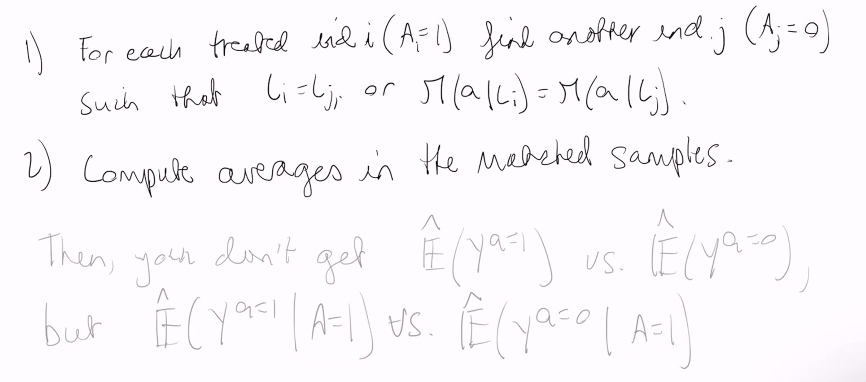 1) For each treated ind i (A_i=1) find another ind. j (A_j=0)
such that L_i=L_j, or π(a|L_i)=π(a|L_j).
2) Compute averages in the matched samples.
Then, you don't get Ê(Y^{a=1}) vs. Ê(Y^{a=0}),
but Ê(Y^{a=1} | A=1) vs. Ê(Y^{a=0} | A=1)